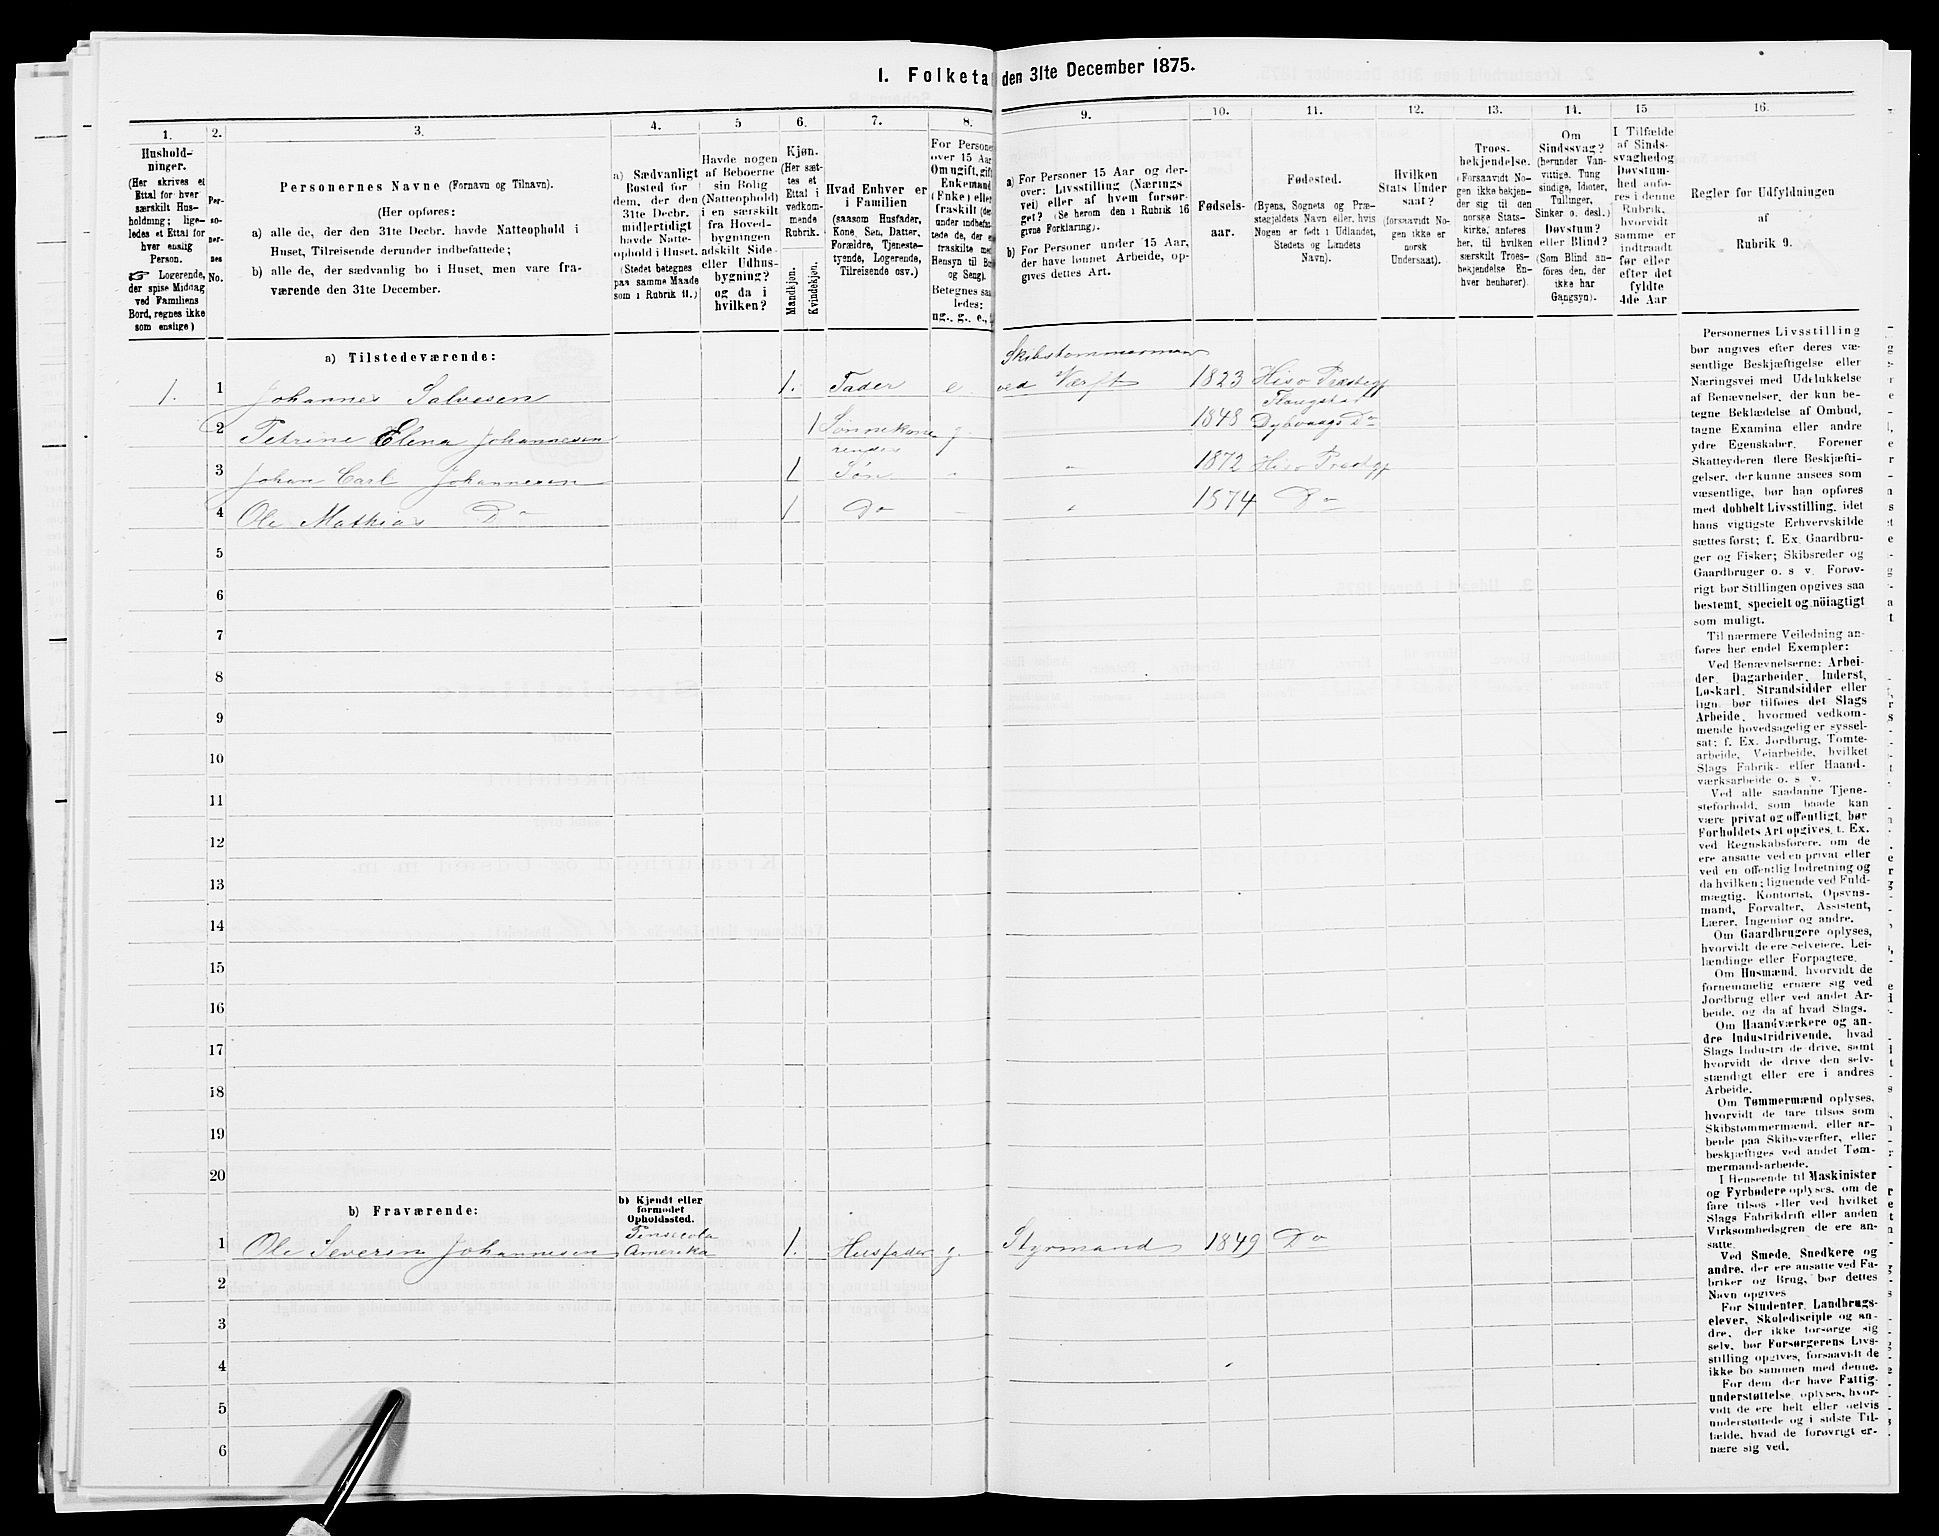 1. Folketa den 31te December 1875.
1.
Hushold-
ninger.
(Her skrives et
Ettal for hver
særskilt Hus-
holdning; lige-
ledes et Ettal for
hver enslig
Person.
☞ Logerende,
der spise Middag
ved Familiens
Bord, regnes ikke
som enslige)
2.
Per-
so-
ner-
nes
No.
3.
Personernes Navne (Fornavn og Tilnavn).
(Her opføres:
a) alle de, der den 31te Decbr. havde Natteophold i
Huset, Tilreisende derunder indbefattede;
b) alle de, der sædvanlig bo i Huset, men vare fra-
værende den 31te December.
4.
a) Sædvanligt
Bosted for
dem, der den
31te Decbr.
midlertidigt
havde Natte-
ophold i Huset.
(Stedet betegnes
paa samme Maade
som i Rubrik 11.)
5
Havde nogen
af Beboerne
sin Bolig
(Natteophold)
i en særskilt
fra Hoved-
bygningen
adskilt Side-
eller Udhus-
bygning?
og da i
hvilken?
6.
Kjøn.
(Her sæt-
tes et
Ettal i
vedkom-
mende
Rubrik.
Mandkjøn.
Kvindekjøn.
7.
Hvad Enhver er
i Familien
(saasom Husfader,
Kone, Søn, Datter,
Forældre, Tjeneste-
tyende, Logerende,
Tilreisende osv.)
8.
For Persone
over 15 Aar
Om ugift, gift
Enkemand
(Enke) elle
fraskilt (de
under indbefat-
tede de, der e
fraskilte me
Hensyn til Bo
og Seng).
Betegnes saa
ledes:
ug., g., e.,
9.
a) For Personer 15 Aar og der-
over: Livsstilling (Nærings
vei) eller af hvem forsør-
get? (Se herom den i Rubrik 16
givne Forklaring).
b) For Personer under 15 Aar,
der have lønnet Arbeide, op-
gives dettes Art.
10.
Fødsels-
aar.
11.
Fødested.
(Byens, Sognets og Præ-
stegjeldets Navn eller, hvis
Nogen er født i Udlandet,
Stedets og Landets
Navn).
12.
Hvilken
Stats Under
saat?
(forsaavidt No-
gen ikke er
norsk
Undersaat).
13.
Troes-
bekjendelse.
(Forsaavidt No-
gen ikke bekjen-
der sig til den
norske Stats-
kirke, anføres
her, til hvilken
særskilt Troes-
bekjendelse En-
hver henhører).
14.
Om
Sindssvag?
(herunder Van-
vittige, Tung
sindige, Idioter,
Tullinger,
Sinker o. desl.)
Døvstum?
eller Blind?
(Som Blind an-
føres den, der
ikke har
Gangsyn).
15
I Tilfælde
af Sinds-
svaghed og
Døvstum-
hed anfø-
res i denne
Rubrik,
hvorvidt
samme er
indtraadt
før eller
efter det
fyldte
4de Aar
16.
Regler for Udfyldningen
af
Rubrik 9.
a) Tilstedeværende:
1. 1 Johannes Salvesen 1. Fader e Skibstømmermand
ved Værft 1823 Hisø Præstegj
2 Petrine Elena Johannesen 1 Sønnekone g. 1848 Flaugstad
Dybvaags Do
3 Johan Carl Johannesen 1 Søn " " 1872 Hisø Præstegj
4 Ole Mathias Do 1 Do " 1874 Do
5
6
7
8
9
10
11
12
13
14
15
16
17
18
19
20
b) Fraværende:
b) Kjendt eller
formodet
Opholdssted.
1 Ole Severin Johannesen Pensecola
Amerika 1. Husfader g. Styrmand 1849 Do
2
3
4
5
6
Personernes Livsstilling
bør angives efter deres væ-
sentlige Beskjæftigelse eller
Næringsvei med Udelukkelse
af Benævnelser, der kun be-
tegne Beklædelse af Ombud,
tagne Examina eller andre
ydre Egenskaber. Forener
Skatteyderen flere Beskjæfti-
gelser, der kunne ansees som
væsentlige, bør han opføres
med dobbelt Livsstilling, idet
hans vigtigste Erhvervskilde
sættes først; f. Ex. Gaardbru-
ger og Fisker; Skibsreder og
Gaardbruger o. s. v. Forøv-
rigt bør Stillingen opgives saa
bestemt, specielt og nöiagtigt
som muligt.
Til nærmere Veiledning an-
føres her endel Exempler:
Ved Benævnelserne: Arbei-
der, Dagarbeider, Inderst,
Løskarl, Strandsidder eller
lign. bør tilføies det Slags
Arbeide, hvormed vedkom-
mende hovedsagelig er syssel-
sat; f. Ex. Jordbrug, Tomte-
arbeide, Veiarbeide, hvilket
Slags Fabrik- eller Haand-
værksarbeide o. s. v.
Ved alle saadanne Tjene-
steforhold, som baade kan
være privat og offentligt, bør
Forholdets Art opgives, t. Ex.
ved Regnskabsførere, om de
ere ansatte ved en privat eller
ved en offentlig Indretning og
da hvilken; lignende ved Fuld-
mægtig, Kontorist, Opsyns-
mand, Forvalter, Assistent,
Lærer, Ingeniør og andre.
Om Gaardbrugere oplyses,
hvorvidt de ere Selveiere, Lei-
lændinge eller Forpagtere.
Om Husmænd, hvorvidt de
fornemmelig ernære sig ved
Jordbrug eller ved andet Ar-
beide, og da af hvad Slags.
Om Haandværkere og an-
dre Industridrivende, hvad
Slags Industri de drive, samt
hvorvidt de drive den selv-
stændigt eller ere i andres
Arbeide.
Om Tømmermænd oplyses,
hvorvidt de fare tilsøs som
Skibstømmermænd, eller ar-
beide paa Skibsværfter, eller
beskjæftiges ved andet Tøm-
mermandsarbeide.
I Henseende til Maskinister
og Fyrbødere oplyses, om de
fare tilsøs eller ved hvilket
Slags Fabrikdrift eller anden
Virksomhedsgren de ere an-
satte.
Ved Smede, Snedkere og
andre, der ere ansatte ved Fa-
briker og Brug, bør dettes
Navn opgives
For Studenter, Landbrugs-
elever, Skoledisciple og an-
dre, der ikke forsørge sig
selv, bør Forsørgerens Livs-
stilling opgives, forsaavidt de
ikke bo sammen med denne.
For dem, der have Fattig-
understøttelse, oplyses, hvor-
vidt de ere helt eller delvis
understøttede og i sidste Til-
fælde, hvad de forøvrigt er-
nære sig ved.